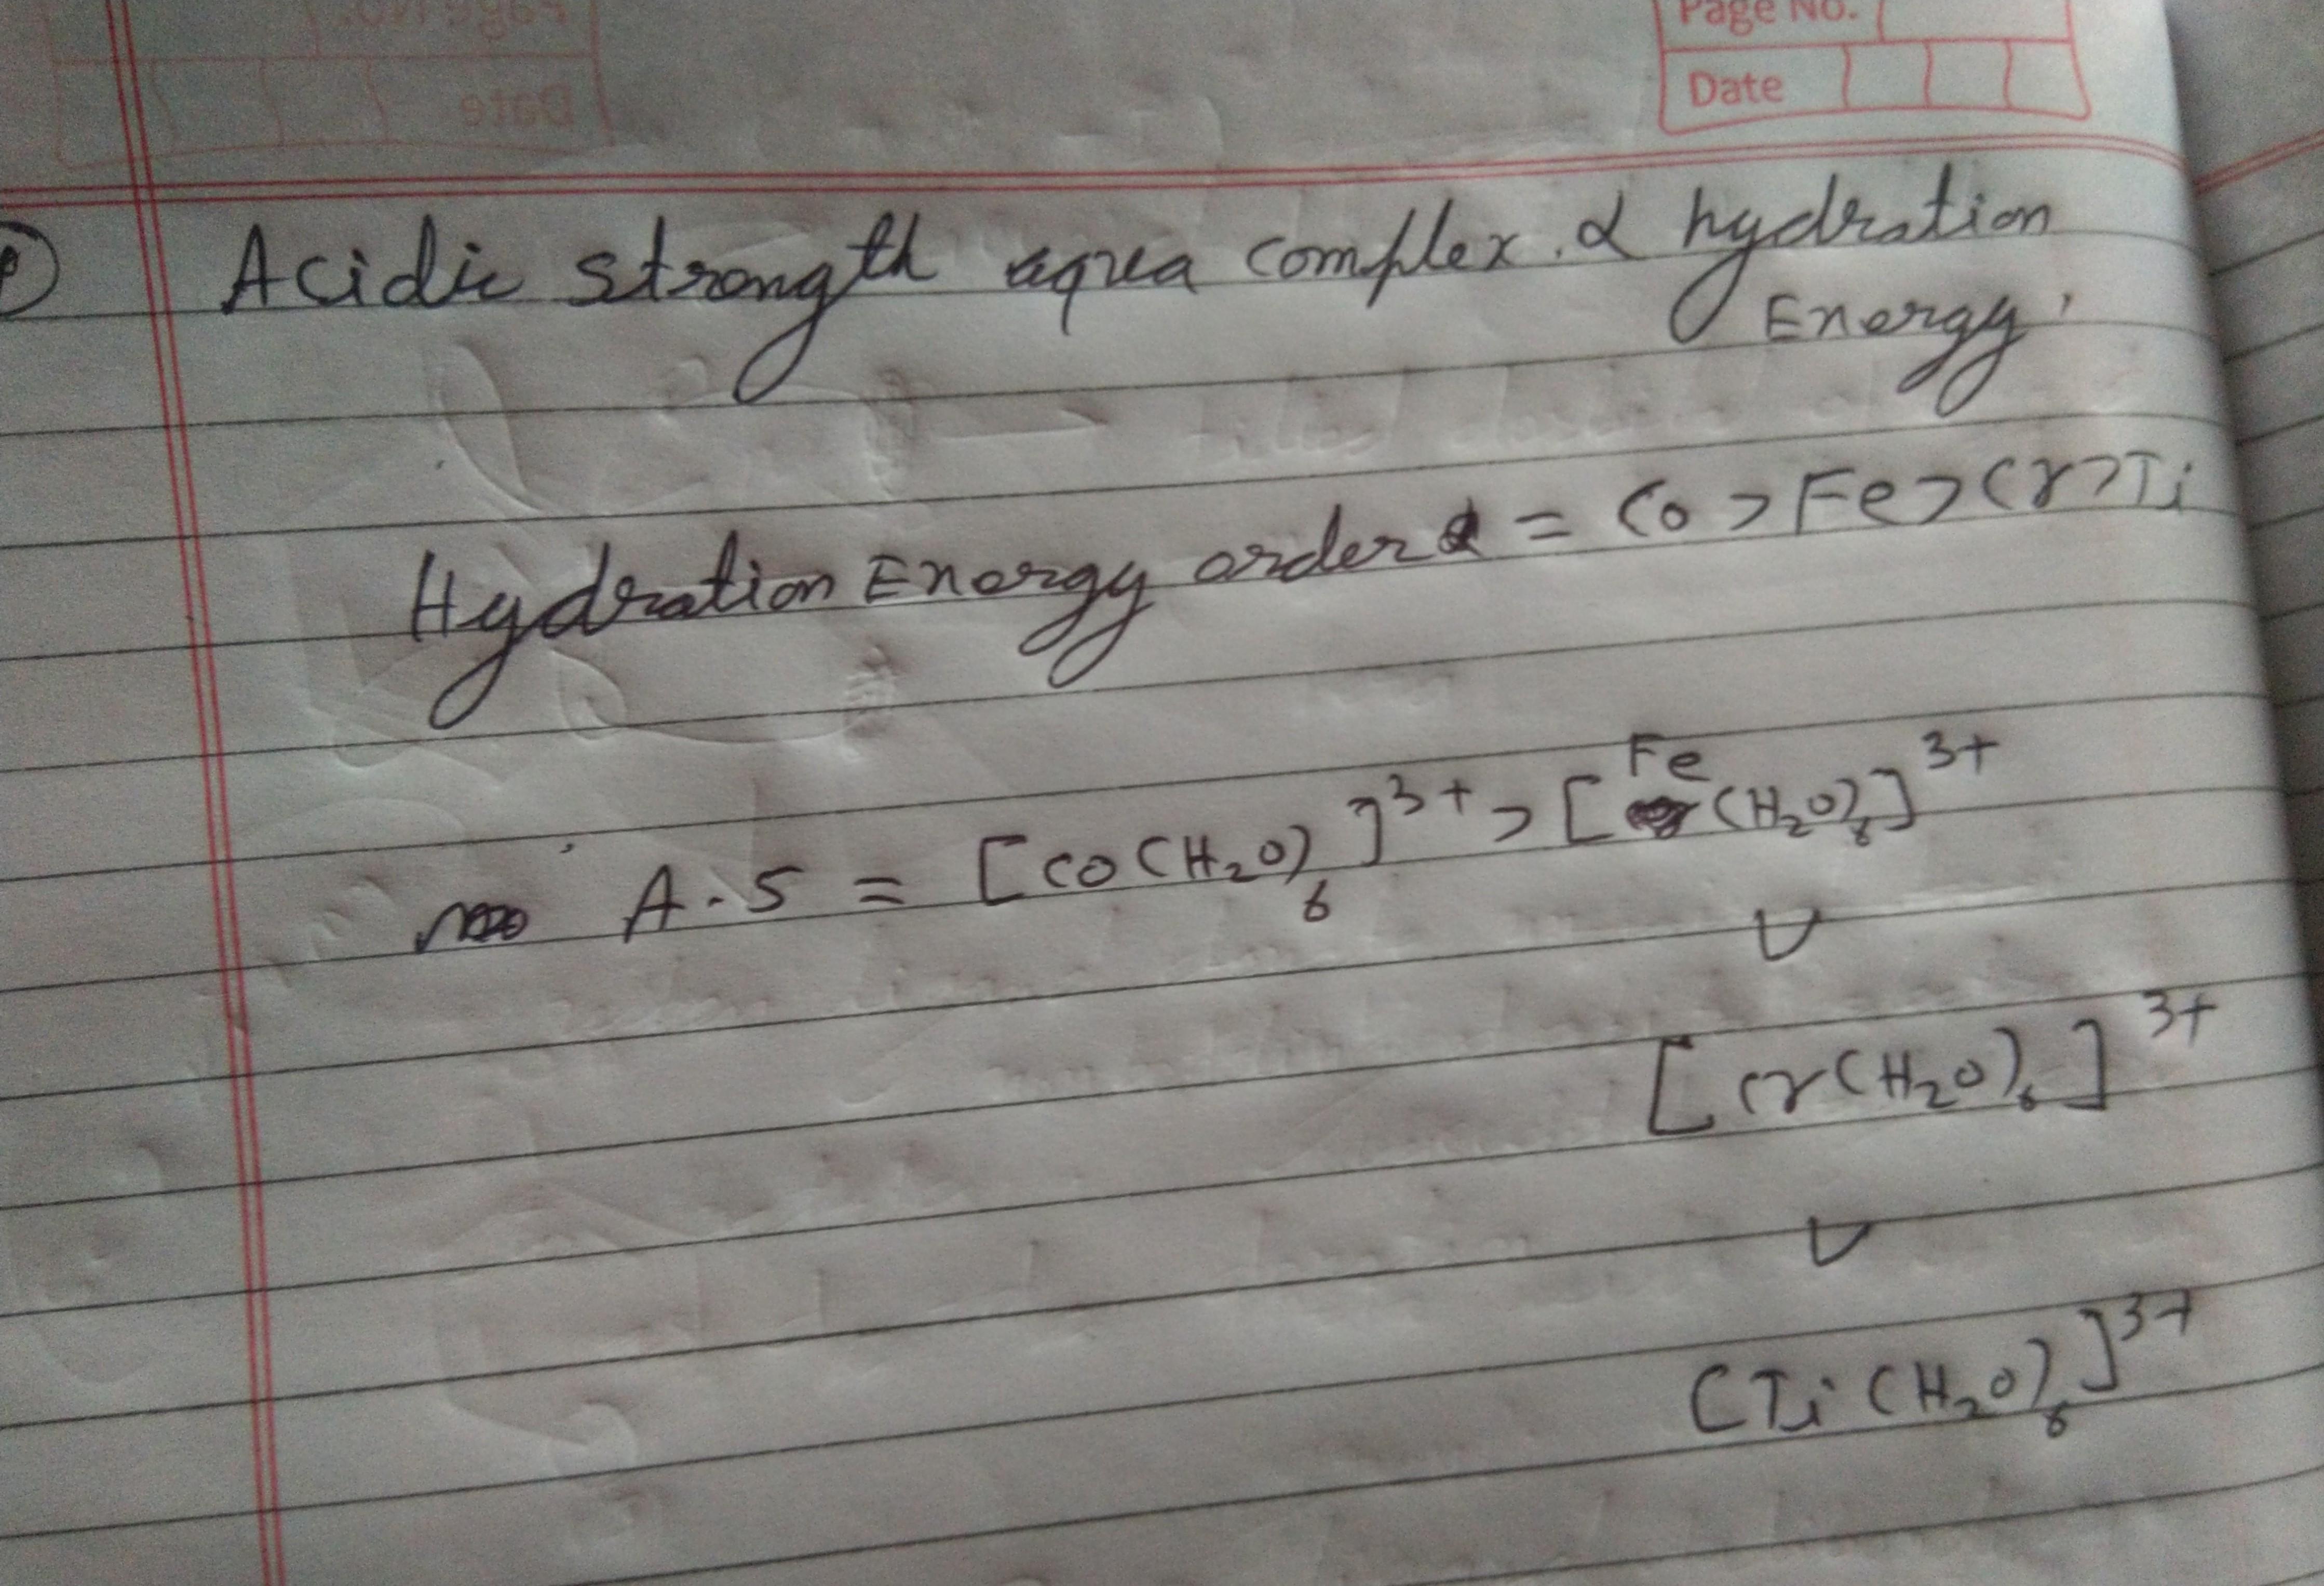 Page No.
Date
Acidic strength aqua complex. α hydration
Energy.
Hydration Energy order = Co > Fe > Cr > Ti
A.S = [Co(H₂O)₆]³⁺ > [Fe(H₂O)₆]³⁺
V
[Cr(H₂O)₆]³⁺
V
[Ti(H₂O)₆]³⁺